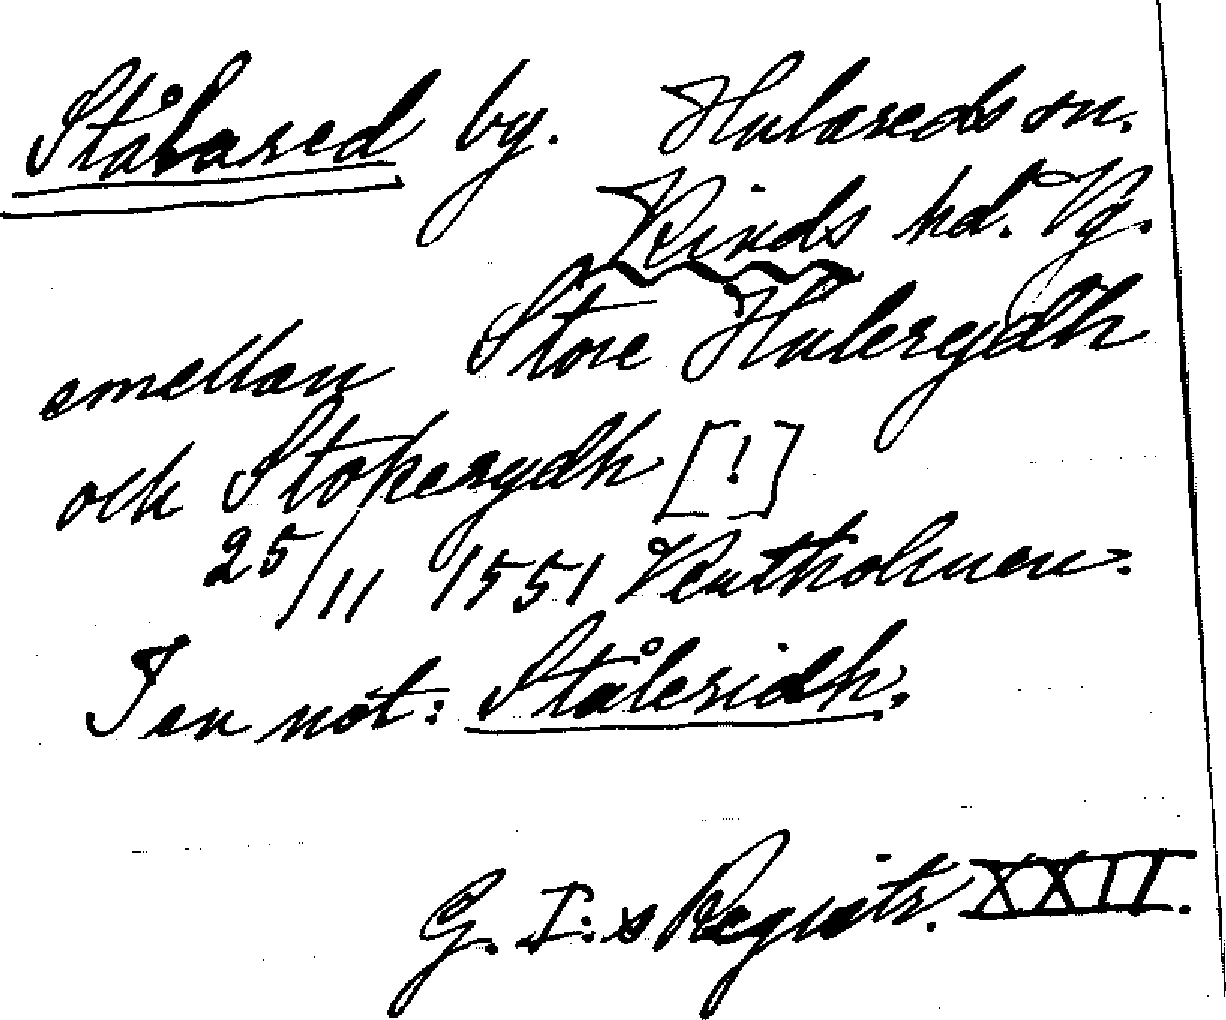 Stålared by. Hulareds sn.
Kinds hd. Vg.
emellan Store Hulerydh
och Stokerydh [!]
25/11 1551 Ventholmen.
I en not: Ståleridh.
G. I:s Registr. XXII.